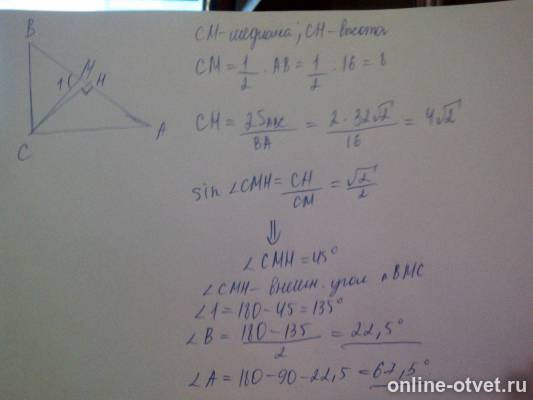 CM - медиана; CH - высота
CM = 1/2 · AB = 1/2 · 16 = 8
CH = 2S ABC / BA = 2 · 32√2 / 16 = 4√2
sin ∠CMH = CH / CM = √2 / 2
⇓
∠CMH = 45°
∠CMH - внешн. угол △ BMC
∠1 = 180 - 45 = 135°
∠B = 180 - 135 / 2 = 22,5°
∠A = 180 - 90 - 22,5 = 67,5°
B
1
M
H
C
A
online-otvet.ru